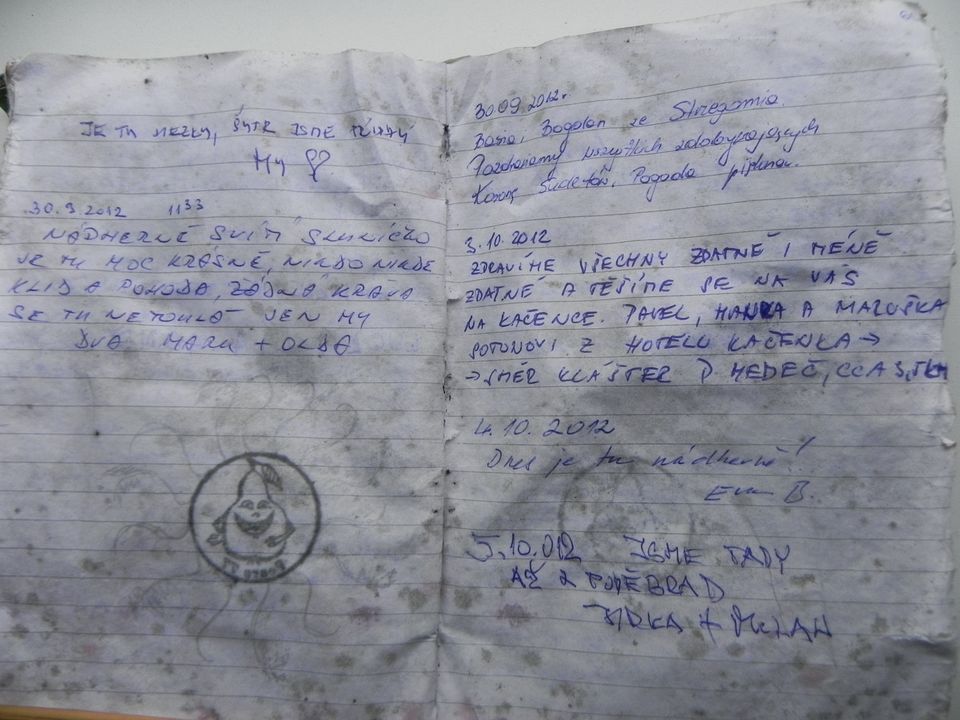 JE TU HEZKY, JSME
MY
30.9.2012 11³³
NÁDHERNĚ SVÍTÍ SLUNÍČKO
JE TU MOC KRÁSNĚ, NIKDO NIKDE
KLID A POHODA, ŽÁDNÁ KRÁVA
SE TU NETOULÁ JEN MY
DVA + OLDA
30.09.2012r.
Basia, Bogdan ze Strzegomia.
Pozdrawiamy wszystkich zdobywających
Koronę Sudetów. Pogoda piękna.
3.10.2012
ZDRAVÍME VŠECHNY ZDATNÉ I MÉNĚ
ZDATNÉ A TĚŠÍME SE NA VÁS
NA KAČENCE. PAVEL, HANKA A MARUŠKA
Z HOTELU KAČENKA →
→ SMĚR KLÁŠTER P. HEDEČ, CCA
4.10.2012
Dnes je tu nádherně!
Eva B.
5.10.012 JSME TADY
AŽ Z PODĚBRAD
JIRKA + MILAN